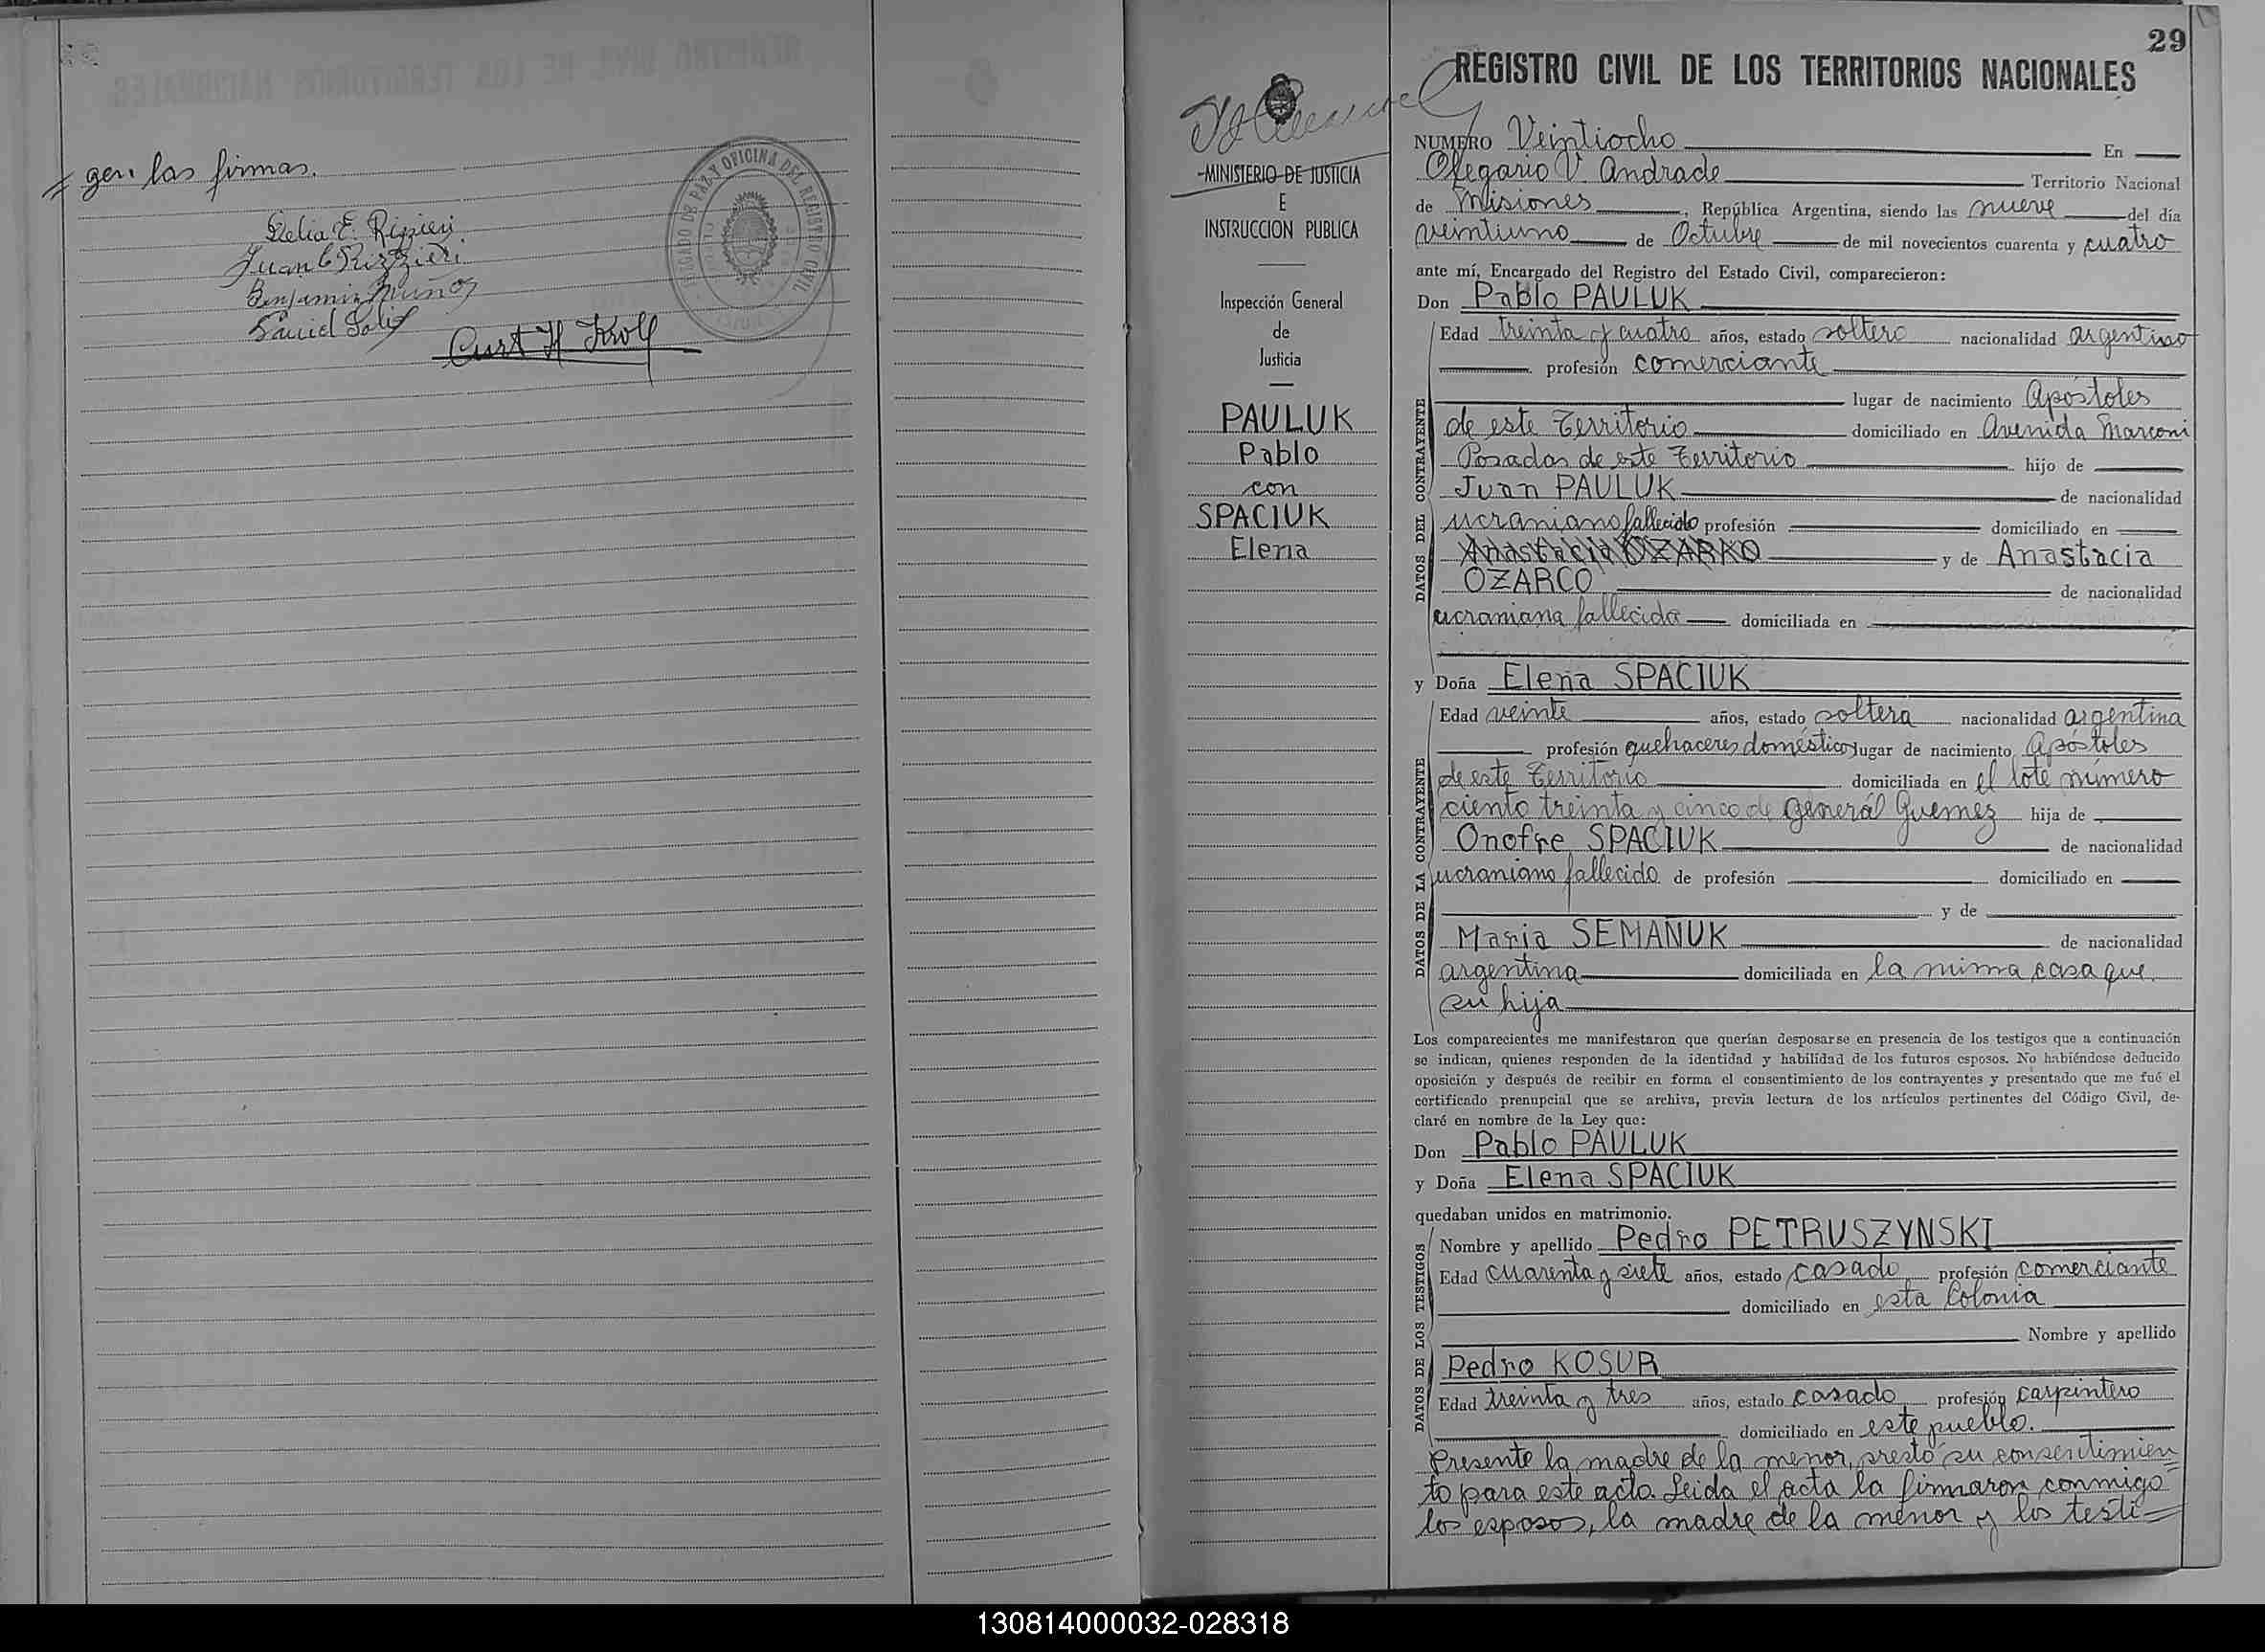 = gen. las firmas.
Delia E. Rizzieri
Juan C Rizzieri
Benjamin Munoz
David Solis
Curt H Kroll
JUZGADO DE PAZ Y OFICINA DEL REGISTRO CIVIL
MINISTERIO DE JUSTICIA
E
INSTRUCCION PUBLICA
Inspección General
de
Justicia
PAULUK
Pablo
con
SPACIUK
Elena
29
REGISTRO CIVIL DE LOS TERRITORIOS NACIONALES
NUMERO Veintiocho En
Olegario V. Andrade Territorio Nacional
de Misiones, República Argentina, siendo las nueve del día
veintiuno de Octubre de mil novecientos cuarenta y cuatro
ante mí, Encargado del Registro del Estado Civil, comparecieron:
Don Pablo PAULUK
DATOS DEL CONTRAYENTE
Edad treinta y cuatro años, estado soltero nacionalidad argentino
profesión comerciante
lugar de nacimiento Apóstoles
de este Territorio domiciliado en Avenida Marconi
Posadas de este Territorio hijo de
Juan PAULUK de nacionalidad
ucraniano fallecido profesión domiciliado en
Anastacia OZARKO y de Anastacia
OZARCO de nacionalidad
ucraniana fallecida domiciliada en
y Doña Elena SPACIUK
DATOS DE LA CONTRAYENTE
Edad veinte años, estado soltera nacionalidad argentina
profesión quehaceres domésticos lugar de nacimiento Apóstoles
de este Territorio domiciliada en el lote número
ciento treinta y cinco de General Guemez hija de
Onofre SPACIUK de nacionalidad
ucraniano fallecido de profesión domiciliado en
y de
Maria SEMAÑUK de nacionalidad
argentina domiciliada en la mima casa que
su hija
Los comparecientes me manifestaron que querían desposarse en presencia de los testigos que a continuación
se indican, quienes responden de la identidad y habilidad de los futuros esposos. No habiéndose deducido
oposición y después de recibir en forma el consentimiento de los contrayentes y presentado que me fué el
certificado prenupcial que se archiva, previa lectura de los artículos pertinentes del Código Civil, de-
claré en nombre de la Ley que:
Don Pablo PAULUK
y Doña Elena SPACIUK
quedaban unidos en matrimonio.
DATOS DE LOS TESTIGOS
Nombre y apellido Pedro PETRUSZYNSKI
Edad cuarenta y siete años, estado casado profesión comerciante
domiciliado en esta Colonia
Nombre y apellido
Pedro KOSUR
Edad treinta y tres años, estado casado profesión carpintero
domiciliado en este pueblo.
Presente la madre de la menor, prestó su consentimien
to para este acto. Leida el acta la firmaron conmigo
los esposos, la madre de la menor y los testi=
130814000032-028318